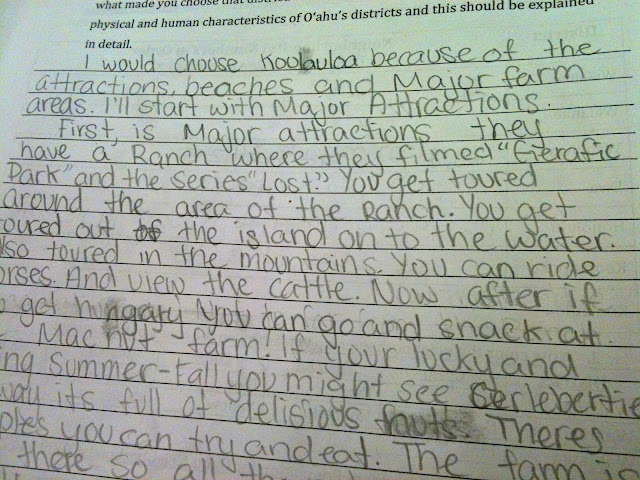 what made you choose that
physical and human characteristics of O'ahu's districts and this should be explained
in detail.
I would choose Koolauloa because of the
attractions, beaches and Major farm
areas. I'll start with Major Attractions.
First, is Major attractions they
have a Ranch where they filmed "Gerafic
Park" and the series "Lost." You get toured
around the area of the Ranch. You get
oured out of the island on to the water.
lso toured in the mountains. You can ride
orses. And view the cattle. Now after if
get hungary you can go and snack at
Mac nut farm! If your lucky and
ng Summer-Fall you might see Serleberties
way its full of delisious fruts. Theres
ples you can try and eat. The farm is
there so all